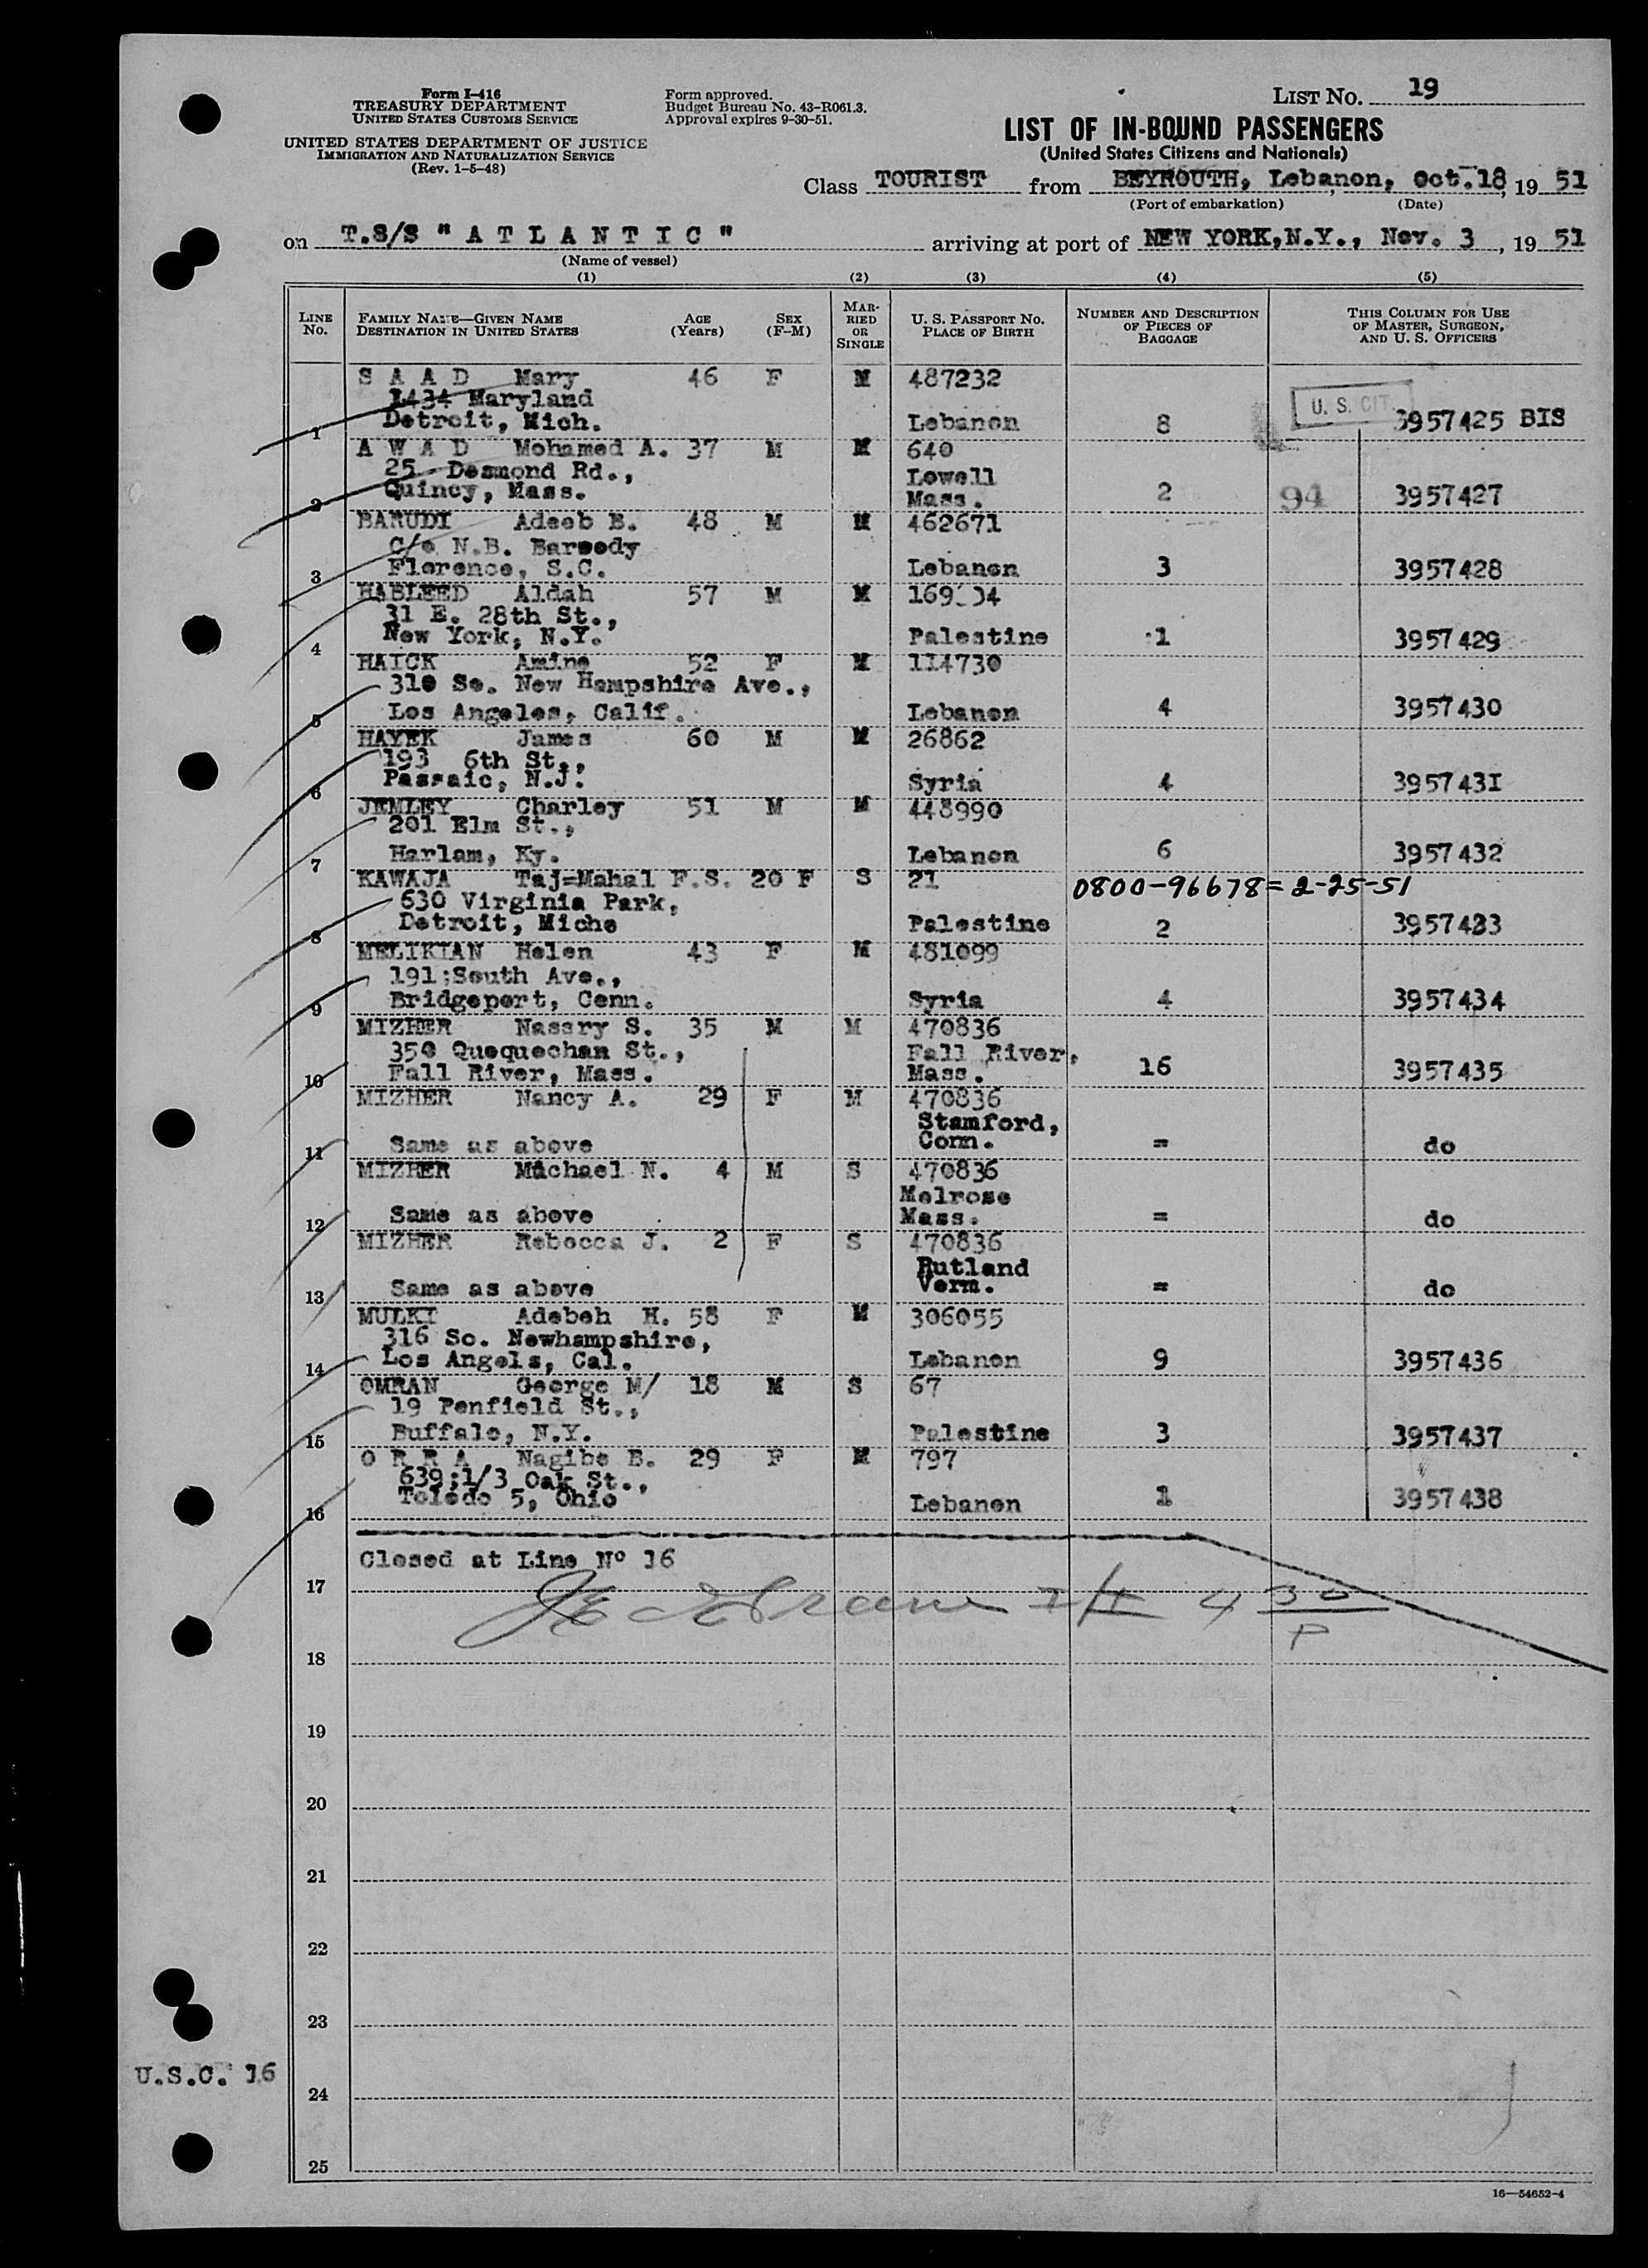 Form I-416
TREASURY DEPARTMENT
UNITED STATES CUSTOMS SERVICE
UNITED STATES DEPARTMENT OF JUSTICE
IMMIGRATION AND NATURALIZATION SERVICE
(Rev. 1-5-48)
Form approved.
Budget Bureau No. 43-R061.3.
Approval expires 9-30-51.
LIST NO. 19
LIST OF IN-BOUND PASSENGERS
(United States Citizens and Nationals)
Class TOURIST from BEYROUTH, Lebanon, Oct. 18, 19 51
(Port of embarkation) (Date)
on T.S/S " A T L A N T I C " arriving at port of NEW YORK, N.Y., Nov. 3, 19 51
(Name of vessel)
(1) (2) (3) (4) (5)
LINE NO. FAMILY NAME—GIVEN NAME DESTINATION IN UNITED STATES AGE (Years) SEX (F-M) MARRIED OR SINGLE U. S. PASSPORT NO. PLACE OF BIRTH NUMBER AND DESCRIPTION OF PIECES OF BAGGAGE THIS COLUMN FOR USE OF MASTER, SURGEON, AND U. S. OFFICERS
S A A D Mary 46 F M 487232
1434 Maryland
U. S. CIT.
1 Detroit, Mich. Lebanon 8 3957425 BIS
A W A D Mohamed A. 37 M M 640
25 - Desmond Rd., Lowell
2 Quincy, Mass. Mass. 2 94 3957427
BARUDI Adeeb B. 48 M M 462671
C/o N.B. Baroody
3 Florence, S.C. Lebanon 3 3957428
HABLEED Aldah 57 M M
31 E. 28th St.,
4 New York, N.Y. Palestine 1 3957429
HAICK Amine 52 F M 114730
310 So. New Hampshire Ave.,
5 Los Angeles, Calif. Lebanon 4 3957430
HAYEK James 60 M M 26862
193 6th St.,
6 Passaic, N.J. Syria 4 3957431
JEMLEY Charley 51 M M 448990
201 Elm St.,
7 Harlam, Ky. Lebanon 6 3957432
KAWAJA Taj=Mahal F.S. 20 F S 21 0800-96678=2-25-51
630 Virginia Park,
8 Detroit, Miche Palestine 2 3957433
MELIKIAN Helen 43 F M 481099
191;South Ave.,
9 Bridgeport, Conn. Syria 4 3957434
MIZHER Nassry S. 35 M M 470836
350 Quequechan St., Fall River,
10 Fall River, Mass. Mass. 16 3957435
MIZHER Nancy A. 29 F M 470836
Stamford,
11 Same as above Conn. = do
MIZHER Michael N. 4 M S 470836
Melrose
12 Same as above Mass. = do
MIZHER Rebecca J. 2 F S 470836
Rutland
13 Same as above Verm. = do
MULKI Adebeh H. 58 F M 306055
316 So. Newhampshire,
14 Los Angels, Cal. Lebanon 9 3957436
OMRAN George M/ 18 M S 67
19 Penfield St.,
15 Buffalo, N.Y. Palestine 3 3957437
O R R A Nagibe B. 29 F M 797
639;1/3 Oak St.,
16 Toledo 5, Ohio Lebanon 1 3957438
Closed at Line Nº 16
17
4 30
P
18
19
20
21
22
23
U.S.C. 16
24
25
16—54652-4